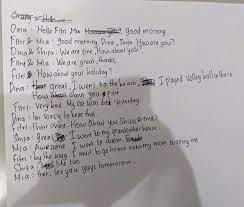 Dina : Hello Fitri Mia good morning
Fitri & Mia : good morning Dina, Shipa. How are you?
Dina & Shipa : We are fine, How about you?
Fitri & Mia : We are great, thanks
Fitri : How about your holiday?
Dina : that great, I went to the beach, I played volley ball there
How about you Fitri
Fitri : Very bad. My cat was died yesterday
Dina : I'm sorry to hear that
Fitri : that's okay. How about you Shipa & Mia
Shipa : Great, I went to my grandmother house
Mia : Awesome I went to
Fitri : by the way I must to go home now my mom waiting me
Shipa : Me too
Mia : then, see you guys tomorrow.